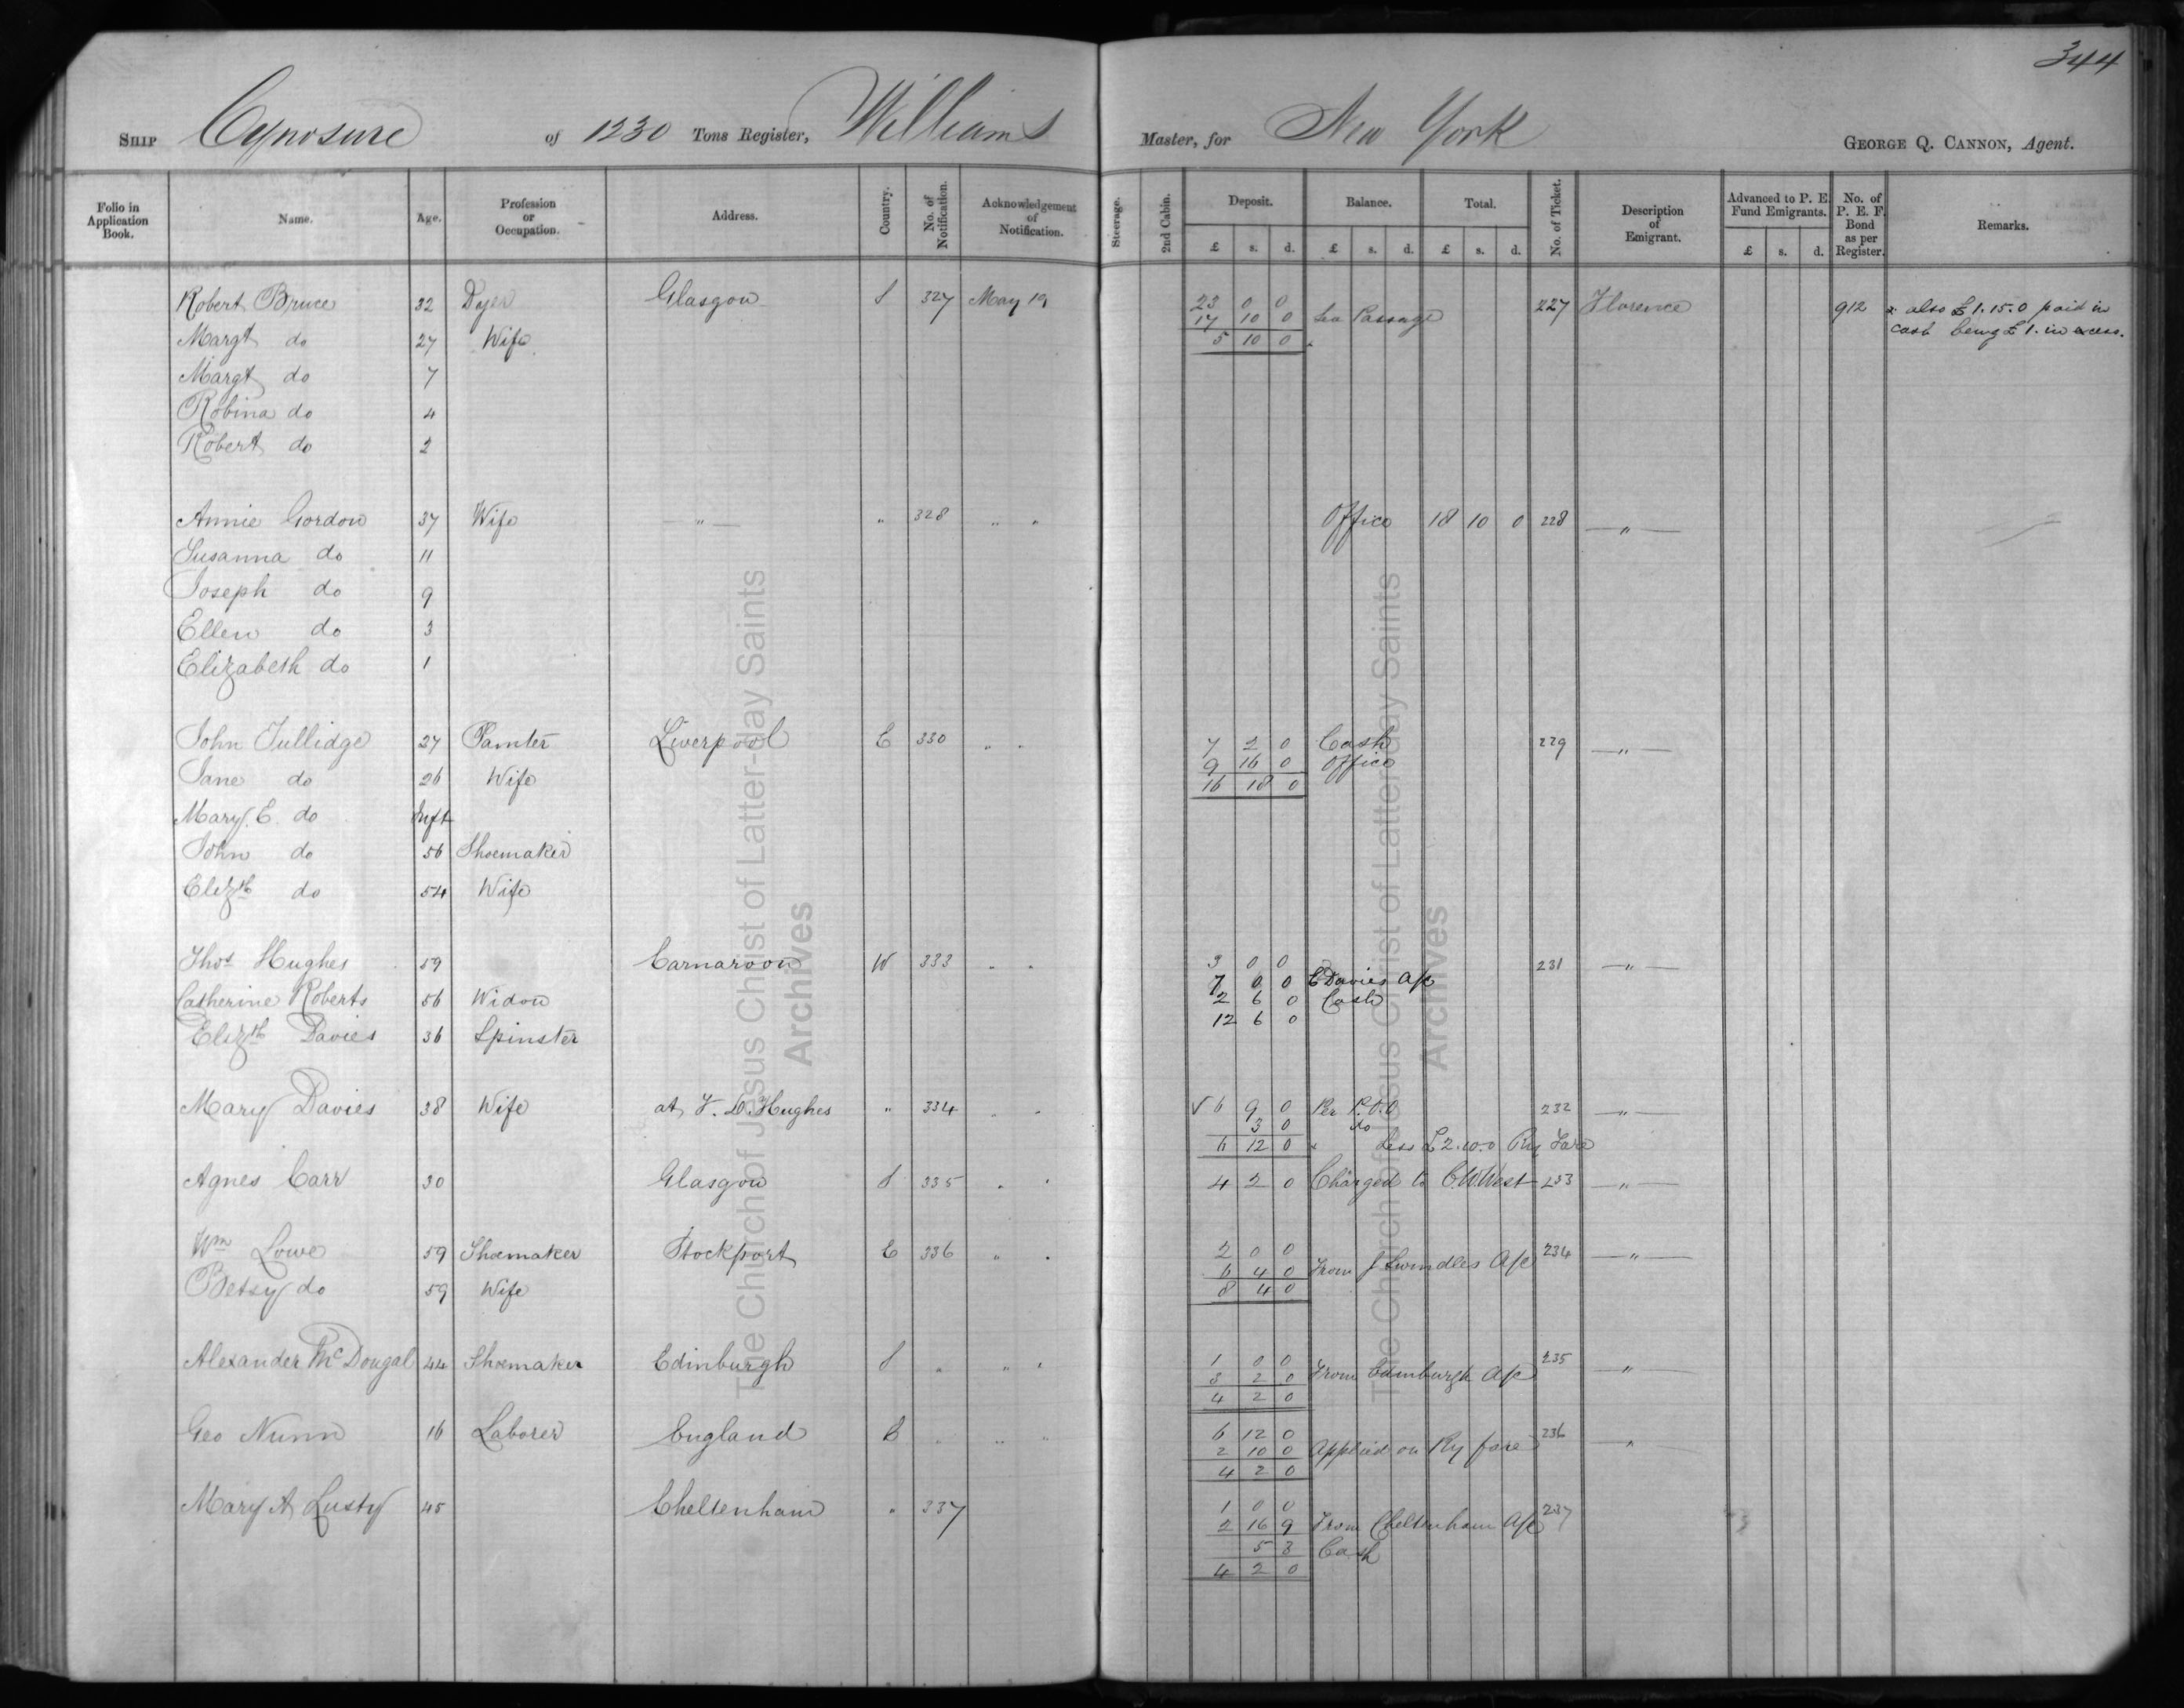 344
Ship Cynosure of 1230 Tons Register, Williams Master, for New York George Q. Cannon, Agent.
Folio in Application Book. Name. Age. Profession or Occupation. Address. Country. No. of Notification. Acknowledgement of Notification. Steerage. 2nd Cabin. Deposit. Balance. Total. No. of Ticket. Description of Emigrant. Advanced to P. E. Fund Emigrants. No. of P. E. F. Bond as per Register. Remarks.
£ s. d. £ s. d. £ s. d. £ s. d.
Robert Bruce 32 Dyer Glasgow S 327 May 19 23 0 0 227 Florence 912 x also £1.15.0 paid in
17 10 0 Sea Passage cash being £1. in excess.
Margt do 27 Wife 5 10 0 x
Margt do 7
Robina do 4
Robert do 2
Annie Gordon 37 Wife — " — " 328 " " Office 18 10 0 228 — " —
Susanna do 11
Joseph do 9
Ellen do 3
Elizabeth do 1
John Tullidge 27 Painter Liverpool E 330 " " 7 2 0 Cash 229 — " —
9 16 0 Office
Jane do 26 Wife 16 18 0
Mary E. do Inft
John do 56 Shoemaker
Elizth do 54 Wife
Thos Hughes 59 Carnarvon W 333 " " 3 0 0 231 — " —
7 0 0 E Davies A/c
Catherine Roberts 56 Widow 2 6 0 Cash
12 6 0
Elizth Davies 36 Spinster
Mary Davies 38 Wife at T. D. Hughes " 334 " " √ 6 9 0 Per P.O.O 232 — " —
3 0 do
6 12 0 x Less £2.10.0 Ry Fare
Agnes Carr 30 Glasgow S 335 " " 4 2 0 Charged to C.W. West 233 — " —
Wm Lowe 59 Shoemaker Stockport E 336 " " 2 0 0 234 — " —
6 4 0 From J Swindles A/c
Betsy do 59 Wife 8 4 0
Alexander McDougal 44 Shoemaker Edinburgh S " " " 1 0 0 235 — " —
3 2 0 From Edinburgh A/c
4 2 0
Geo Nunn 16 Laborer England E " " " 6 12 0 236 — " —
2 10 0 Applied on Ry fare
4 2 0
Mary A Lusty 45 Cheltenham " 337 1 0 0 237
2 16 9 From Cheltenham A/c
5 3 Cash
4 2 0
The Church of Jesus Christ of Latter-day Saints
Archives
The Church of Jesus Christ of Latter-day Saints
Archives